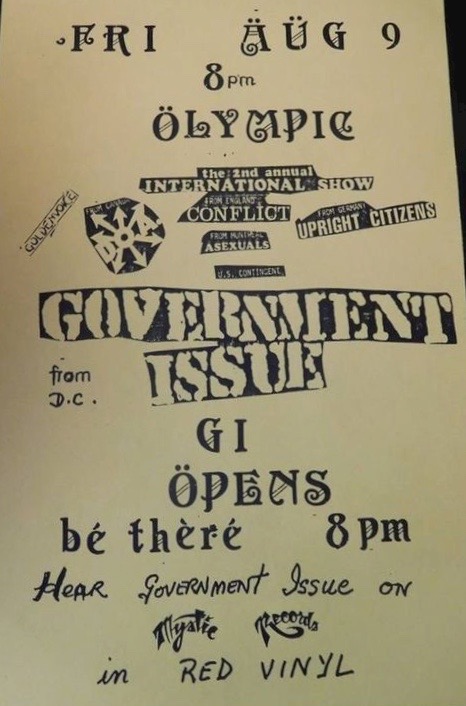 FRI ÄÜG 9
8pm
ÖLYMPIC
the 2nd annual
INTERNATIONAL SHOW
GOLDENVOICE
FROM CANADA
D.O.A
FROM ENGLAND
CONFLICT
FROM GERMANY
UPRIGHT CITIZENS
FROM MONTREAL
ASEXUALS
U.S. CONTINGENT
GOVERNMENT
ISSUE
from
D.C.
GI
ÖPENS
bé thèré 8pm
HEAR GOVERNMENT ISSUE ON
Mystic Records
in RED VINYL